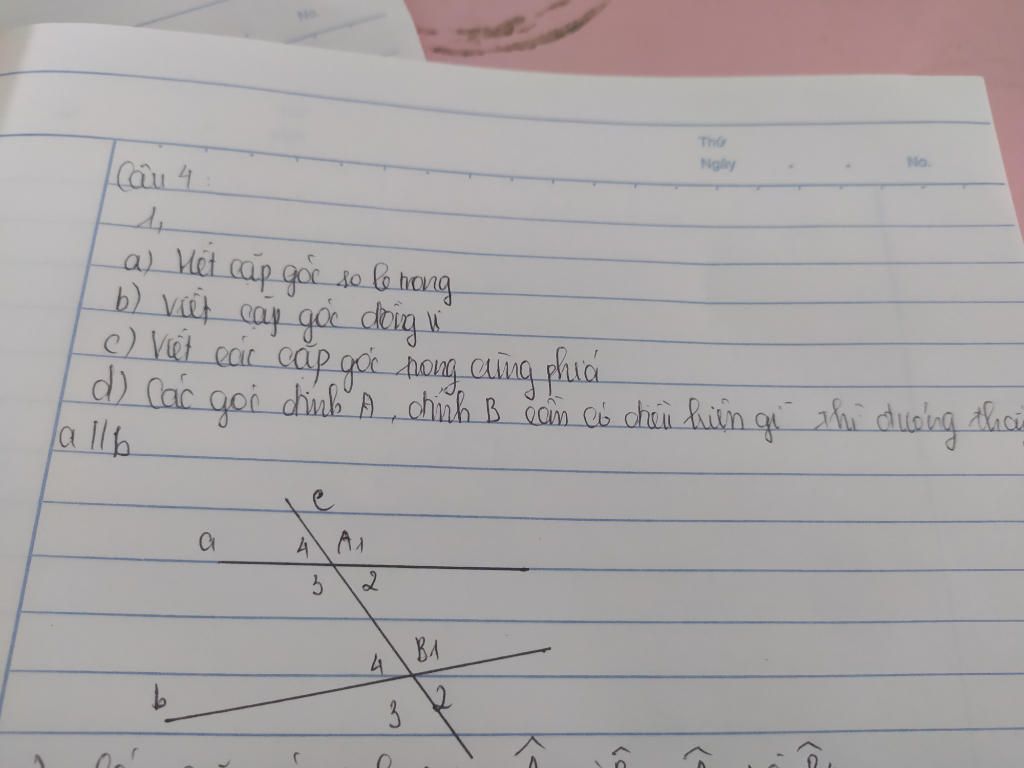 No.
Thứ
Ngày
No.
Câu 4:
1,
a) Viết cặp góc so le trong
b) Viết cặp góc đồng vị
c) Viết các cặp góc trong cùng phía
d) Các góc đỉnh A, đỉnh B cần có điều kiện gì thì đường
a // b
c
a 4 A1
3 2
4 B1
b 3 2